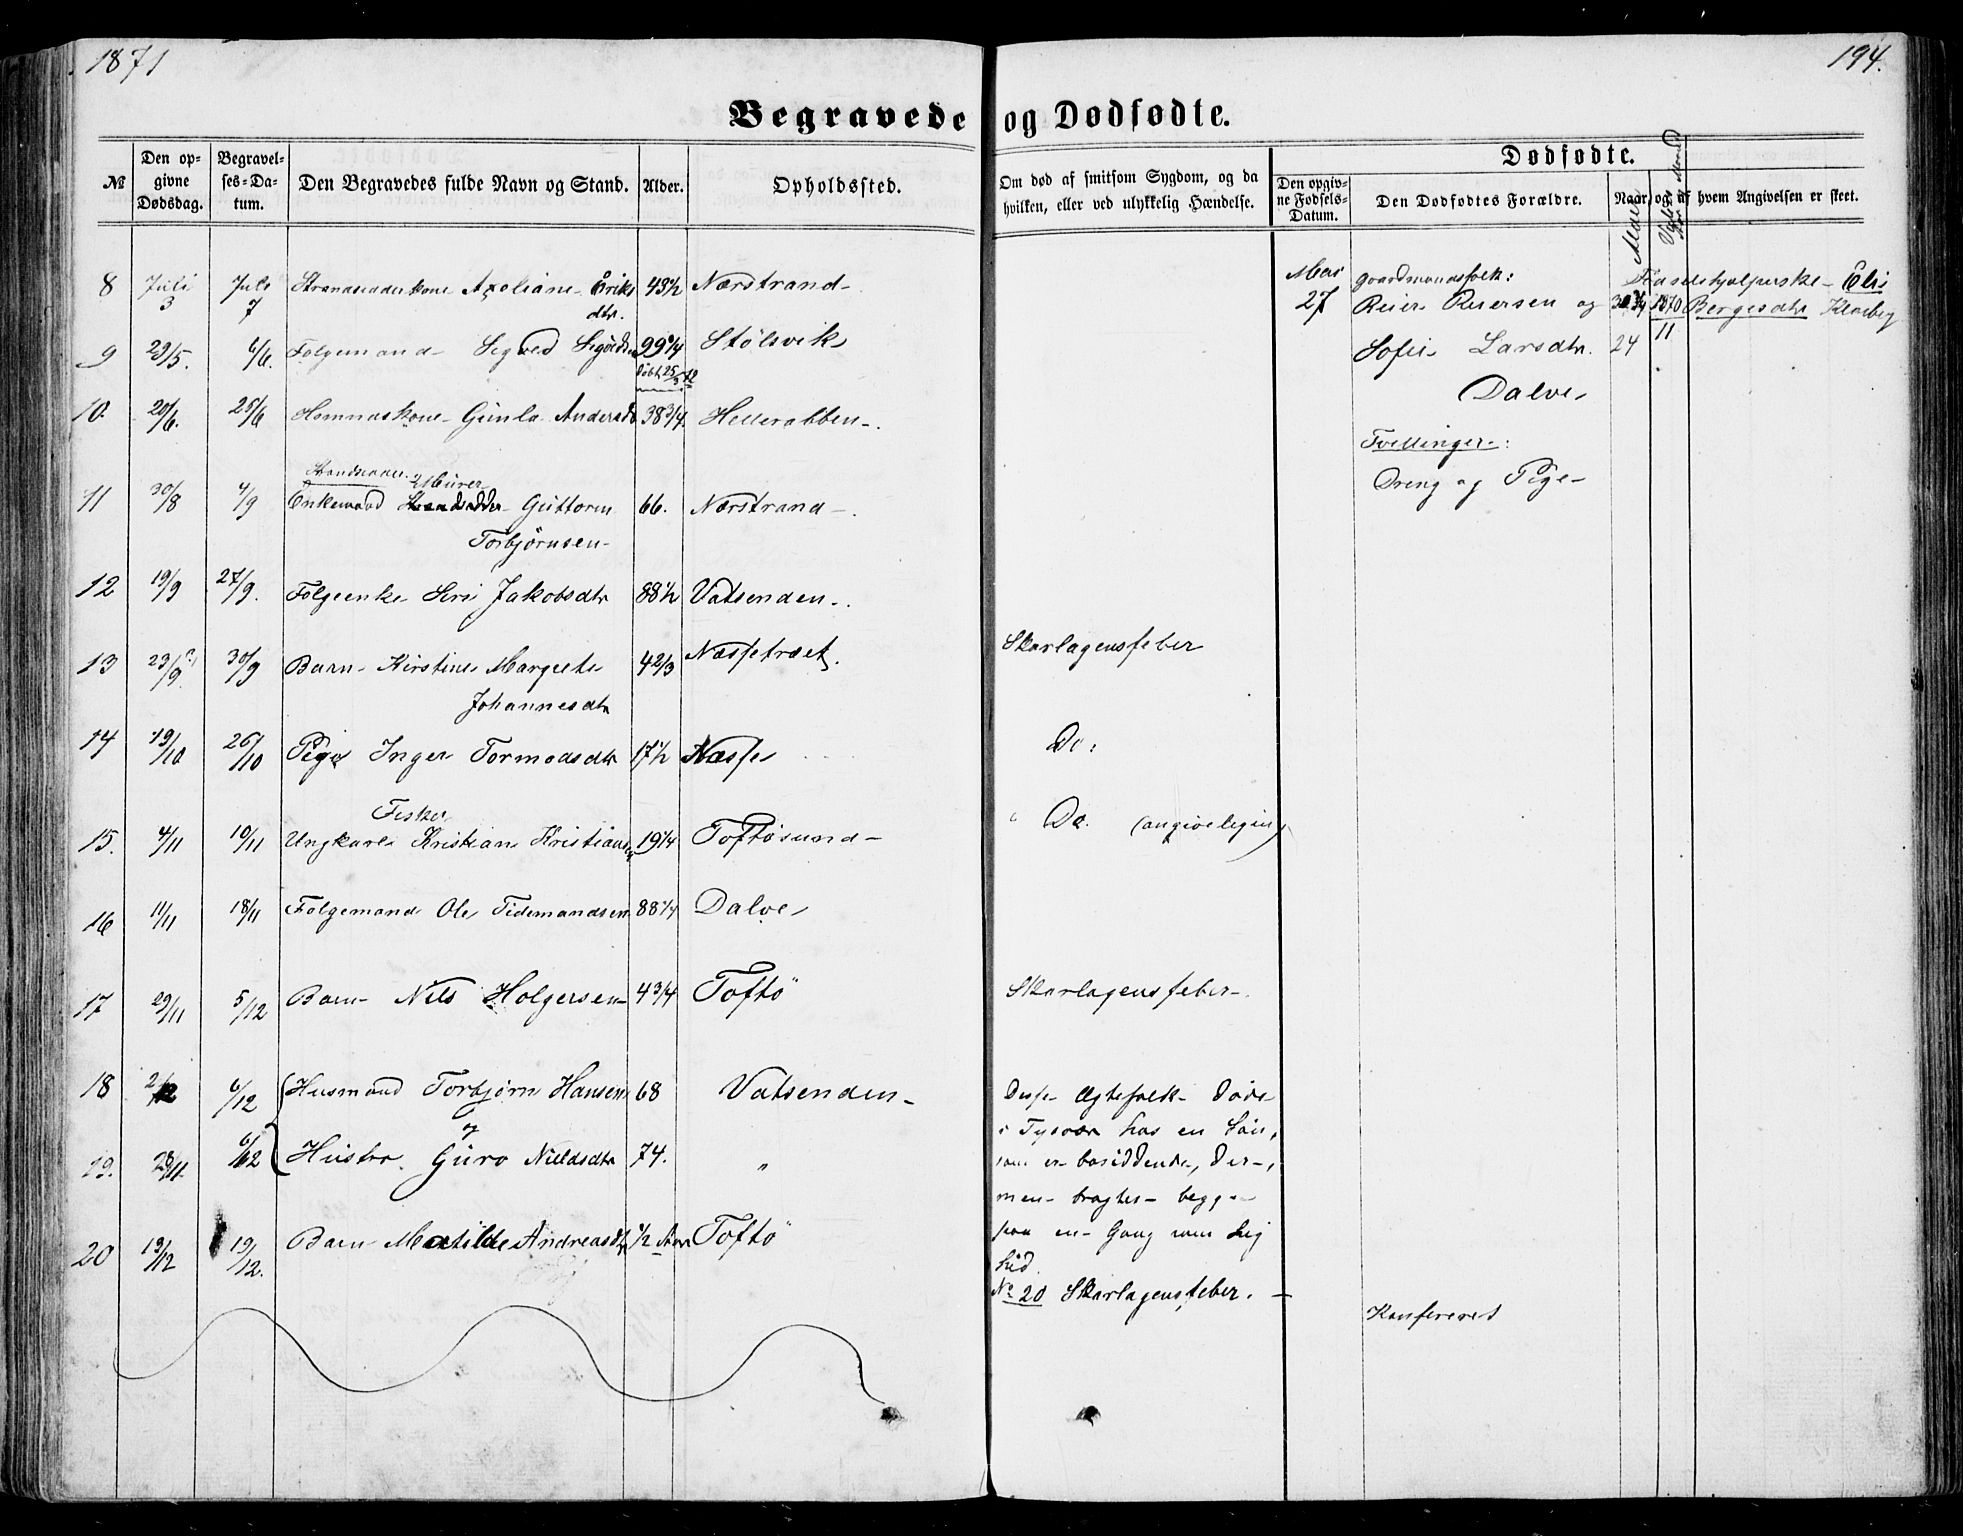 1871
194.
Begravede og Dødfødte.
№
Den op-
givne
Dødsdag.
Begravel-
ses-Da-
tum.
Den Begravedes fulde Navn og Stand.
Alder.
Opholdssted.
Om død af smitsom Sygdom, og da
hvilken, eller ved ulykkelig Hændelse.
Dødfødte.
Den opgiv-
ne Fødsels-
Datum.
Den Dødfødtes Forældre.
Naar, og af hvem Angivelsen er skeet.
8 Juli 3 Juli 7 Strandsidderkone Axeliane Eriks 43½ Nærstrand
dtr.
Mai 27 gaardmandsfolk:
Fødselshjelperske Elsi
Reier Reiersen og 1870 Bergesdtr
Sofie Larsdtr. 24 11
Dalve
Tvillinger:
Dreng og Pige
9 29/5. 6/6. Følgemand 99¼ Stølsvik
døbt 25/2 72
10. 20/6. 25/6 Gunla Andersd 38¾. Hellerabben.
11 30/8 4/9 Enkemand Murer Guttorm 66. Nærstrand.
Torbjørnsen
12 19/9 27/9. Følgeenke Siri Jakobsdtr 88½ Vatsenden.
13 23/9 30/9 Barn Kirstine Margrete 4 2/3 Næssetræet. Skarlagensfeber
Johannesdtr
14 19/10 26/10 Pige Inger Tormodsdtr 17½ Næsse Do:
Fisker
15. 4/11 10/11 Ungkarl Kristian Kristians 19¼ Toftøsund Do. (angivelig
16 11/11 18/11 Følgemand Ole Tidemandsen 88¼ Dalve
17 29/11 5/12 Barn Nils Holgersen 4¾ Toftø Skarlagensfeber.
18 2/12 6/12 Husmand Torbjørn Hansen 68 Vatsenden
og
19. 28/11. 6/12 Hustro Guro Nieldsdtr 74. "
Disse Ægtefolk døde
i Tysvær hos en Søn,
som er bosiddende der,
men bragtes begge
paa en Gang som Lig
hid.
20 13/12 19/12. Barn Matilde Andreasdtr ½ Aar Toftø
No 20 Skarlagensfeber.
Konfereret